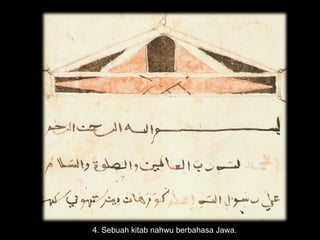 بسم الله الرحمن الرحيم
لله رب العالمين والصلوة والسلام
علي رسول الله اعلم
4. Sebuah kitab nahwu berbahasa Jawa.